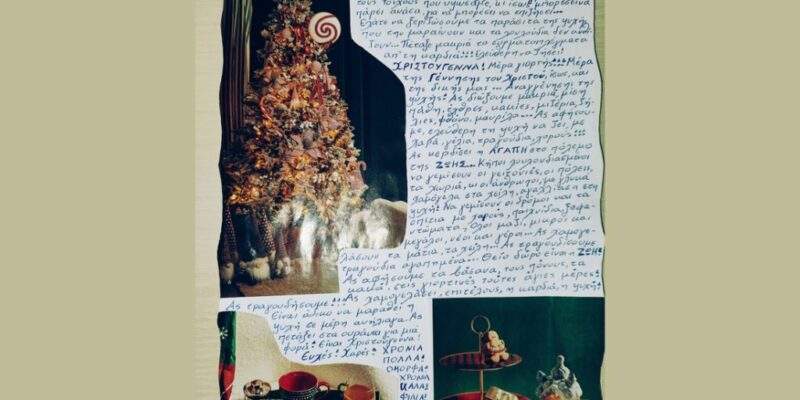 τους τοίχους που υψώθηκε, κι ίσως μπορέσει να
πάρει ανάσα, για να μπορέσει να επιζήσει...
Ελάτε να ξεριζώσουμε τα παράσιτα της ψυχής
που την μαραίνουν και τα λουλούδια δεν ανθί-
ζουν... Πετάξτε μακριά τα συρματοπλέγματα
απ' τη καρδιά!!! Ελεύθερη να ζήσει!
ΧΡΙΣΤΟΥΓΕΝΝΑ! Μέρα γιορτής!!! Μέρα
της Γέννησης του Χριστού, ίσως, και
της δικής μας... Αναγέννησης της
ψυχής! Ας διώξουμε μακριά, μίση
πάθη, έχθρες, κακίες, μιζέρια, ζή-
λιες, φθόνο, μαυρίλα... Ας αφήσου-
με, ελεύθερη τη ψυχή να ζει, με
χαρά, γέλια, τραγούδια, χορούς!!!
Ας κερδίσει η ΑΓΑΠΗ στο πόλεμο
της ΖΩΗΣ... Κήποι λουλουδιασμένοι
να γεμίσουν οι γειτονιές, οι πόλεις,
τα χωριά, κι οι άνθρωποι, με γλυκά
χαμόγελα στα χείλη, αγαλλίαση στη
ψυχή! Να γεμίσουν οι δρόμοι και τα
σπίτια με χαρούς, παιχνίδια, ξεφα-
ντώματα, όλοι μαζί, μικροί και
μεγάλοι, νέοι και γέροι... Ας χαμογε-
λάσουν τα μάτια, τα χείλη... Ας τραγουδήσουμε
τραγούδια αγαπημένα... Θείο δώρο είναι η ΖΩΗ!
Ας αφήσουμε τα βάσανα, τους πόνους, τα
κακά, στις γιορτινές τούτες άγιες μέρες!
Ας τραγουδήσουμε!!! Ας χαμογελάσει, επιτέλους, η καρδιά, η ψυχή!
Είναι άδικο να μαραθεί η
ψυχή σε μέρη ανήλιαγα. Ας
πετάξει στα ουράνια για μιά
φορά! Είναι Χριστούγεννα!
Ευχές! Χαρές! ΧΡΟΝΙΑ
ΠΟΛΛΑ!
ΟΜΟΡΦΑ!
ΧΡΟΝΙΑ
ΚΑΛΑ!
ΦΙΛΙΑ!